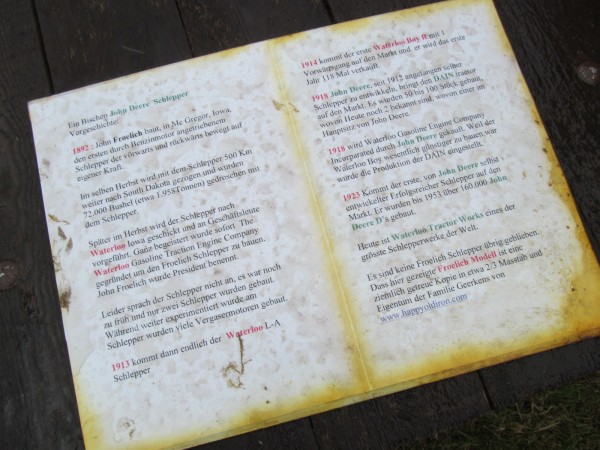 Ein Bischen John Deere Schlepper
Vorgeschichte.
1892 : John Froelich baut, in Mc Gregor, Iowa,
den ersten durch Benzinmotor angetriebenem
Schlepper der vorwärts und rückwärts bewegt auf
eigener Kraft.
Im selben Herbst wird mit dem Schlepper 500 Km
weiter nach South Dakota gezogen und wurden
72.000 Bushel (etwa 1.958Tonnen) gedreschen mit
dem Schlepper.
Später im Herbst wird der Schlepper nach
Waterloo Iowa geschickt und an Geschäftsleute
vorgeführt. Ganz begeistert wurde sofort The
Waterloo Gasoline Traction Engine Company
gegründet um den Froelich Schlepper zu bauen.
John Froelich wurde President berufen.
Leider sprach der Schlepper nicht an, es war noch
zu früh und nur zwei Schlepper wurden gebaut.
Während weiter experimentiert wurde am
Schlepper wurden viele Vergasermotoren gebaut.
1913 kommt dann endlich der Waterloo L-A
Schlepper
1914 kommt der erste Waterloo Boy R mit 1
Vorwärtsgang auf den Markt und er wird das erste
Jahr 118 Mal verkauft.
1918 John Deere, seit 1912 angefangen selber
Schlepper zu entwickeln, bringt den DAIN tractor
auf den Markt. Es wurden 50 bis 100 Stück gebaut,
wovon Heute noch 2 bekannt sind, wovon einer im
Hauptsitz von John Deere.
1918 wird Waterloo Gasoline Engine Company
Incorparated durch John Deere gekauft. Weil der
Waterloo Boy wesentlich günstiger zu bauen war
wurde die Produktion der DAIN eingestellt.
1923 Kommt der erste, von John Deere selbst
entwickelter Erfolgreicher Schlepper auf den
Markt. Er wurden bis 1953 über 160.000 John
Deere D's gebaut.
Heute ist Waterloo Tractor Works eines der
grösste Schlepperwerke der Welt.
Es sind keine Froelich Schlepper übrig geblieben.
Dass hier gezeigte Froelich Modell ist eine
ziemlich getreue Kopie in etwa 2/3 Masstab und
Eigentum der Familie Geerkens von
www.happyoldiron.com